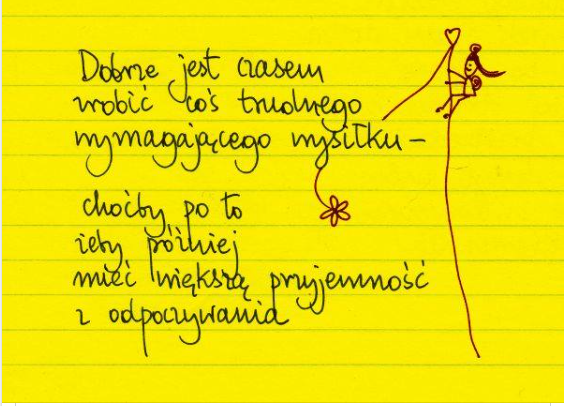 Dobrze jest czasem
zrobić coś trudnego
wymagającego wysiłku –
choćby po to
żeby później
mieć większą przyjemność
z odpoczywania